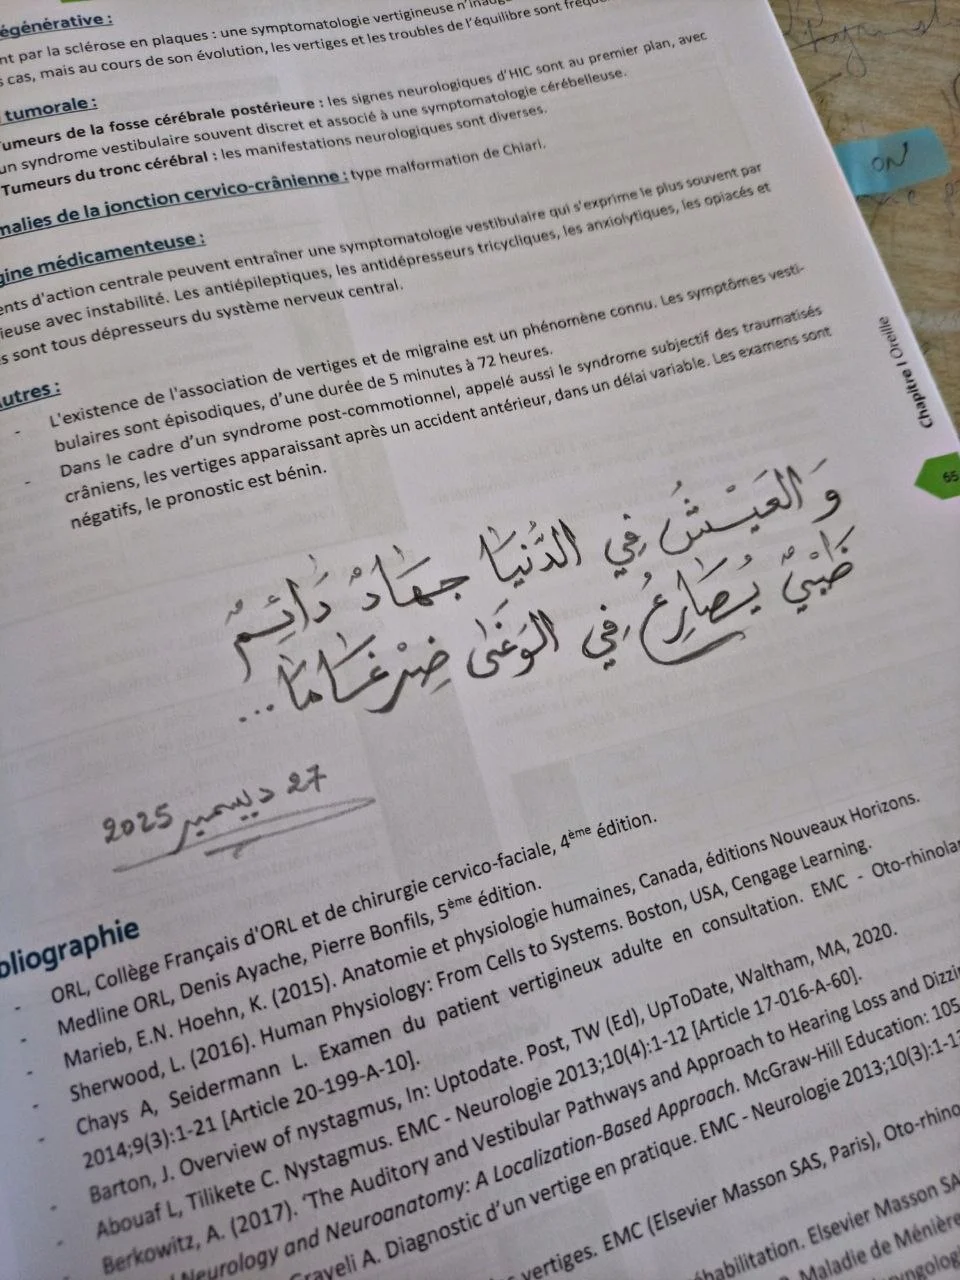 égénérative :
nt par la sclérose en plaques : une symptomatologie vertigineuse n'inaug
s cas, mais au cours de son évolution, les vertiges et les troubles de l'équilibre sont
tumorale :
umeurs de la fosse cérébrale postérieure : les signes neurologiques d'HIC sont au premier plan, avec
un syndrome vestibulaire souvent discret et associé à une symptomatologie cérébelleuse.
Tumeurs du tronc cérébral : les manifestations neurologiques sont diverses.
malies de la jonction cervico-crânienne : type malformation de Chiari.
gine médicamenteuse :
ents d'action centrale peuvent entraîner une symptomatologie vestibulaire qui s'exprime le plus souvent par
ieuse avec instabilité. Les antiépileptiques, les antidépresseurs tricycliques, les anxiolytiques, les opiacés et
s sont tous dépresseurs du système nerveux central.
utres :
- L'existence de l'association de vertiges et de migraine est un phénomène connu. Les symptômes vesti-
bulaires sont épisodiques, d'une durée de 5 minutes à 72 heures.
- Dans le cadre d'un syndrome post-commotionnel, appelé aussi le syndrome subjectif des traumatisés
crâniens, les vertiges apparaissant après un accident antérieur, dans un délai variable. Les examens sont
négatifs, le pronostic est bénin.
ON
Chapitre I Oreille
65
وَالعَيْشُ فِي الدُّنْيَا جِهَادٌ دَائِمٌ
ظَبْيٌ يُصَارِعُ فِي الوَغَى ضِرْغَامَا...
27 ديسمبر 2025
bliographie
- ORL, Collège Français d'ORL et de chirurgie cervico-faciale, 4ème édition.
- Medline ORL, Denis Ayache, Pierre Bonfils, 5ème édition.
- Marieb, E.N. Hoehn, K. (2015). Anatomie et physiologie humaines, Canada, éditions Nouveaux Horizons.
- Sherwood, L. (2016). Human Physiology: From Cells to Systems. Boston, USA, Cengage Learning.
- Chays A, Seidermann L. Examen du patient vertigineux adulte en consultation. EMC - Oto-rhinolar
2014;9(3):1-21 [Article 20-199-A-10].
- Barton, J. Overview of nystagmus, In: Uptodate. Post, TW (Ed), UpToDate, Waltham, MA, 2020.
- Abouaf L, Tilikete C. Nystagmus. EMC - Neurologie 2013;10(4):1-12 [Article 17-016-A-60].
- Berkowitz, A. (2017). 'The Auditory and Vestibular Pathways and Approach to Hearing Loss and Dizzi
Neurology and Neuroanatomy: A Localization-Based Approach. McGraw-Hill Education: 105
Graveli A. Diagnostic d'un vertige en pratique. EMC - Neurologie 2013;10(3):1-1
vertiges. EMC (Elsevier Masson SAS, Paris), Oto-rhino
habilitation. Elsevier Masson SA
Maladie de Ménière